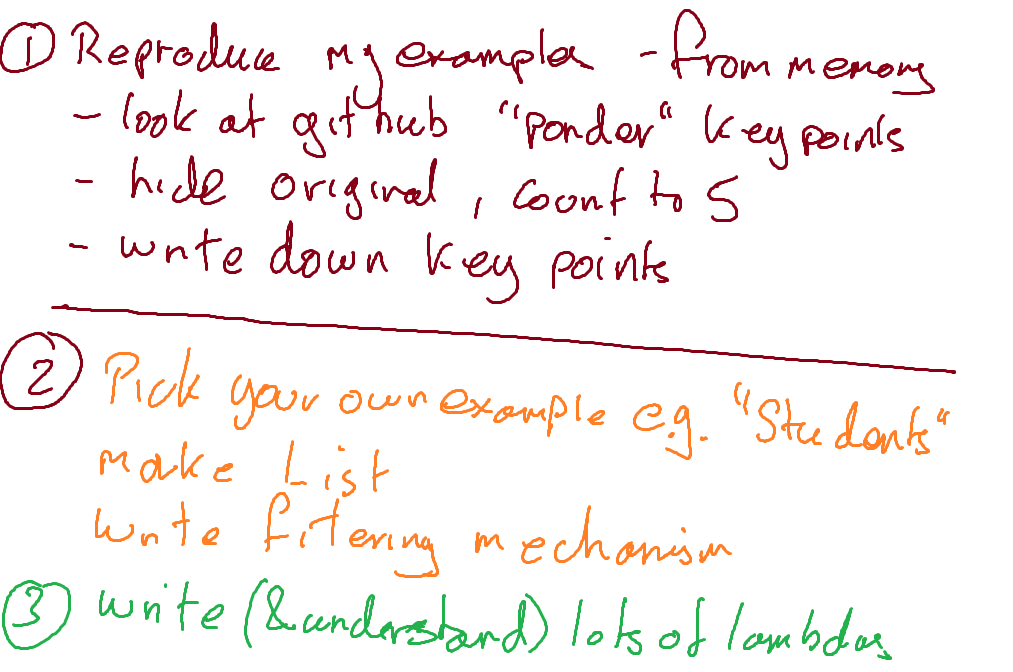 ① Reproduce my example - from memory
- look at github "ponder" key points
- hide original, count to 5
- write down key points
② Pick your own example e.g. "Students"
make List
write fitering mechanism
③ write (& understand) lots of lambdas